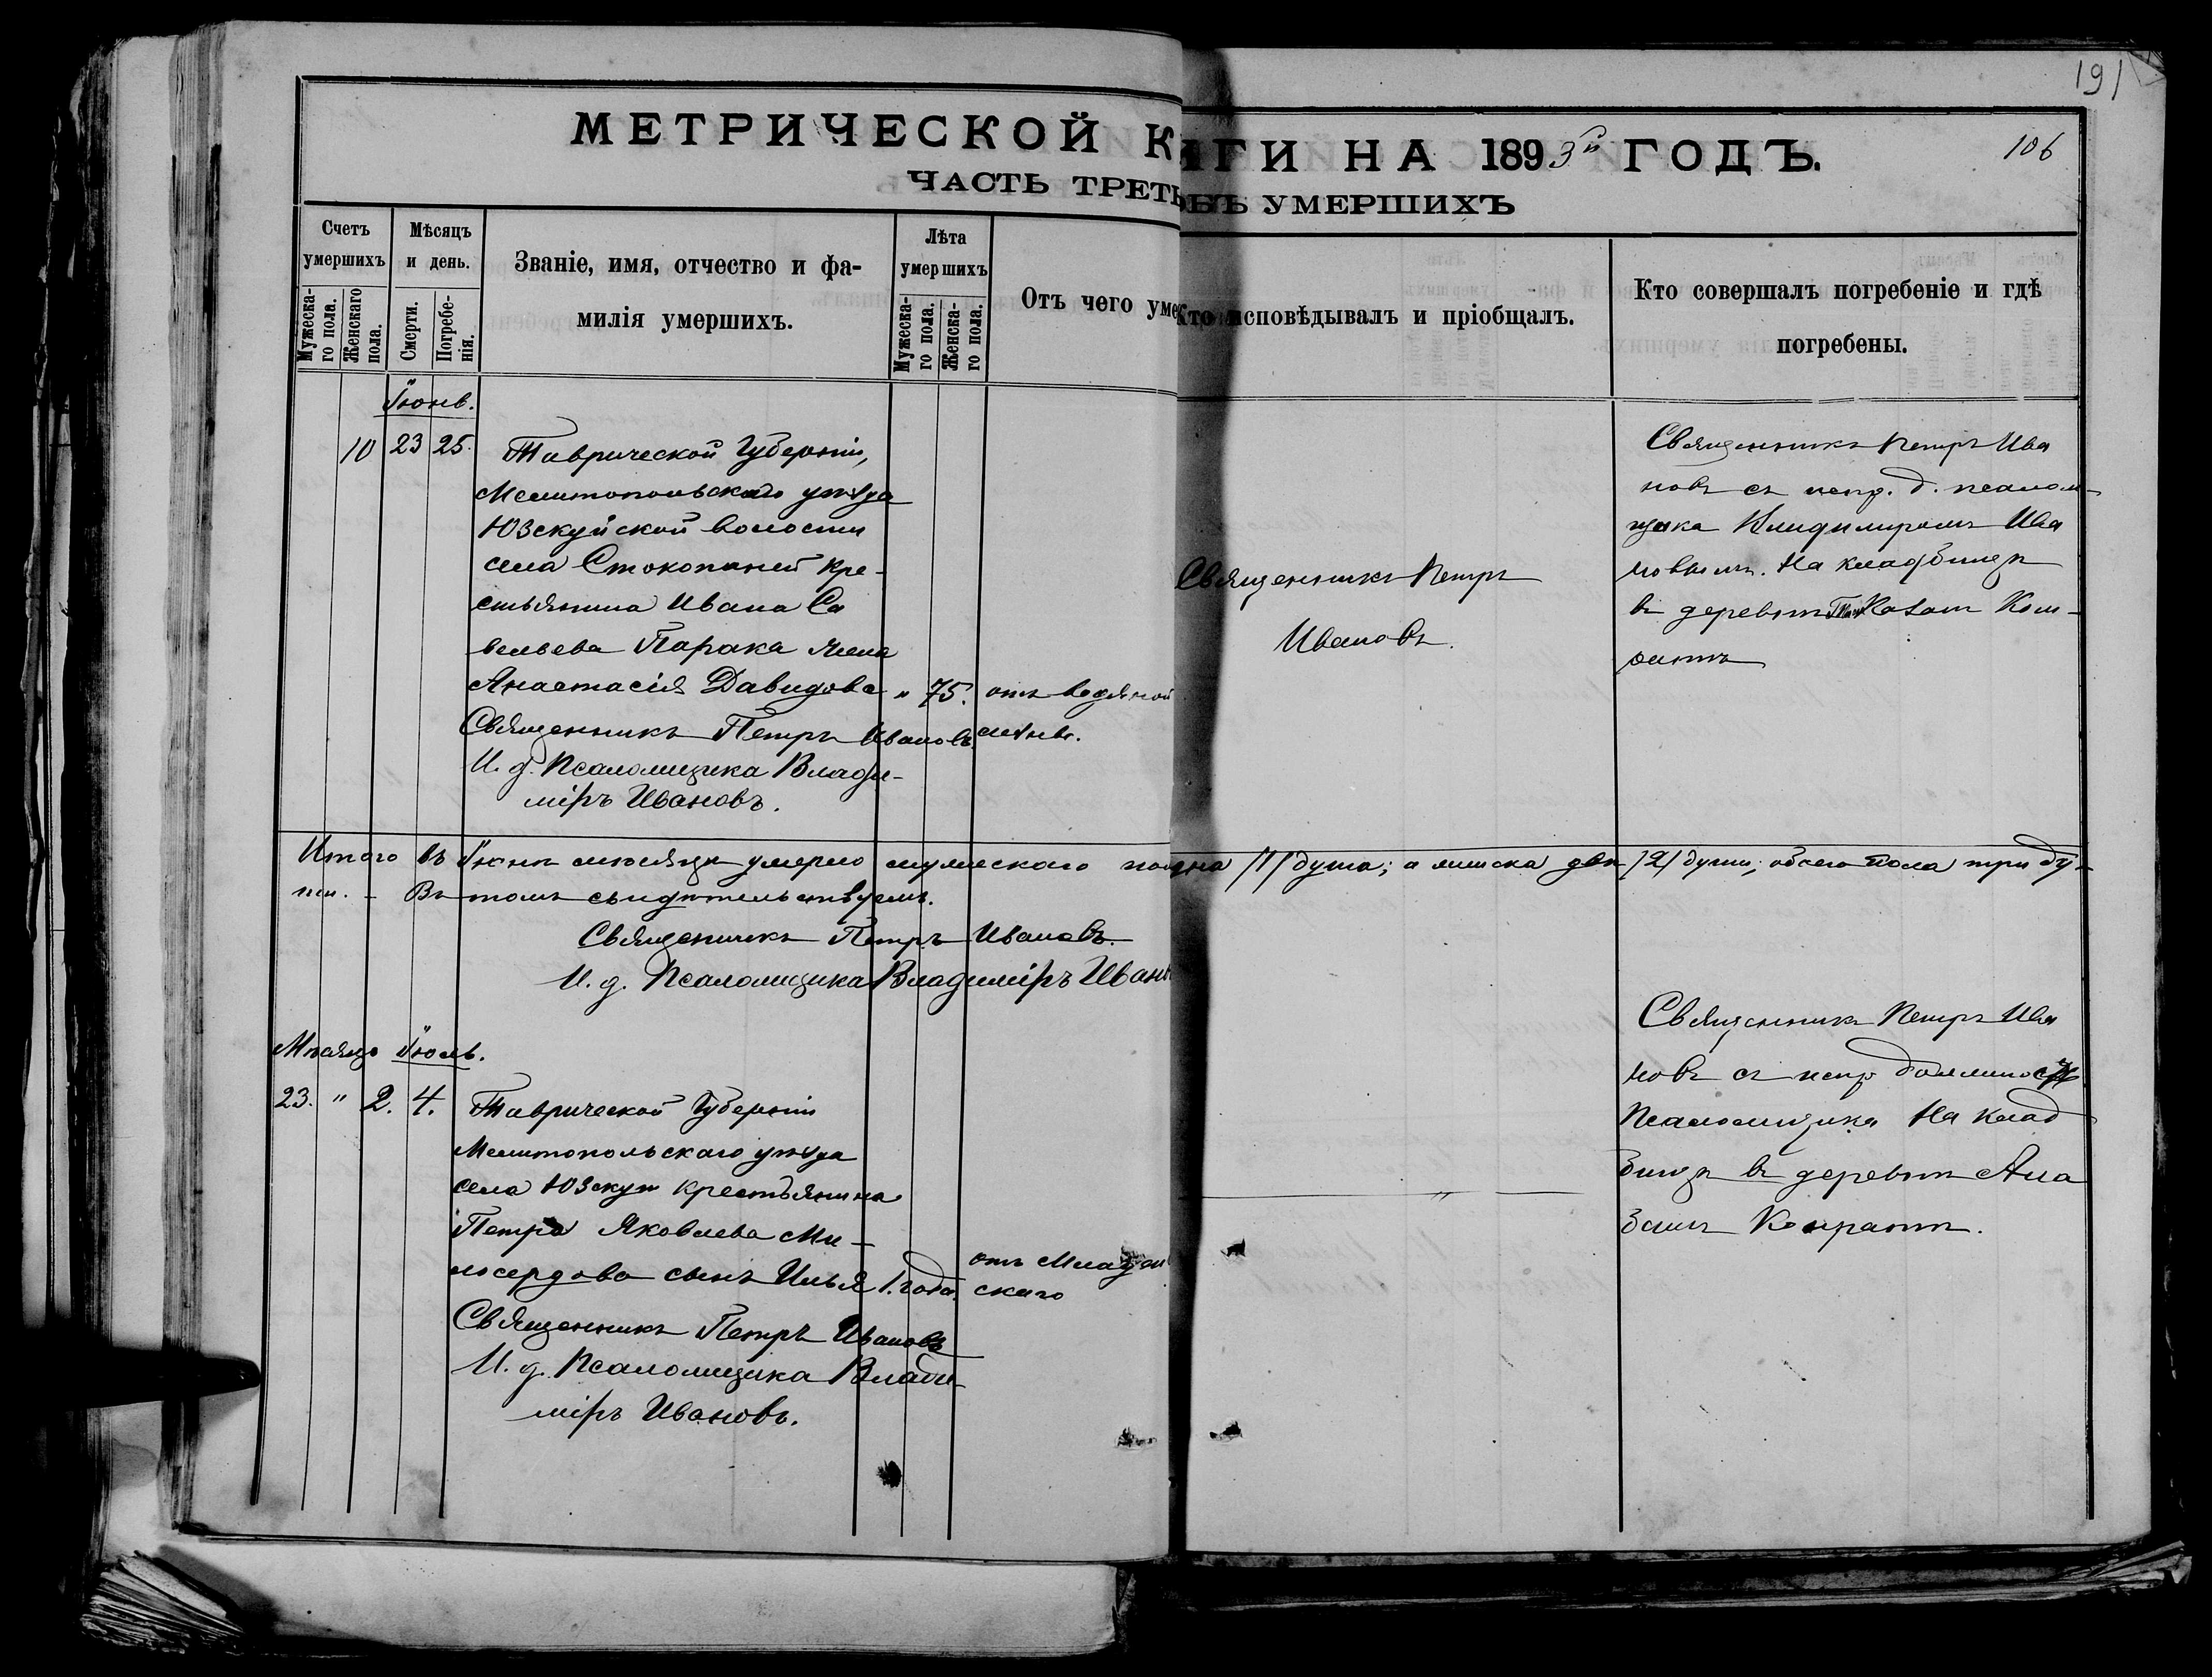 191
МЕТРИЧЕСКОЙ К
ИГИ НА 1893й ГОДЪ.
106
ЧАСТЬ ТРЕТЬ
УМЕРШИХЪ
Счетъ умершихъ
Мужеска-го пола.
Женскаго пола.
Мѣсяцъ и день.
Смерти.
Погребе-нія.
Званіе, имя, отчество и фа-
милія умершихъ.
Лѣта умершихъ
Мужеска-го пола.
Женска-го пола.
Отъ чего уме
Кто исповѣдывалъ и пріобщалъ.
Кто совершалъ погребеніе и гдѣ
погребены.
Іюнь.
10 23 25.
Таврической Губерніи,
Мелитопольскаго уѣзда
Юзкуйской волости
села Стокопаней кре-
стьянина Ивана Са
вельева Парака жена
Анастасія Давидова " 75. отъ водяной
Священникъ Петръ Ивановъ.
И. д. Псаломщика Влади-
міръ Ивановъ.
Священникъ Петръ
Ивановъ.
Священникъ Петръ Ива
новъ съ испр. д. псалом-
щика Владимиромъ Ива
новымъ. На кладбищѣ
въ деревнѣ
Итого въ Іюнѣ мѣсяцѣ умерло мужескаго /1/ душа; а женска двѣ /2/ души; обоего пола три ду-
ши. - Въ томъ свидѣтельствуемъ.
Священникъ Петръ Ивановъ.
И. д. Псаломщика Владиміръ Ивано
Мѣсяцъ Іюль.
23. " 2. 4.
Таврической Губерніи
Мелитопольскаго уѣзда
села Юзкуи крестьянина
Петра Яковлева Ми-
лосердова сынъ Илья 1. года.
отъ Младен
скаго
Священникъ Петръ Ивановъ
И. д. Псаломщика Влади-
міръ Ивановъ.
"
Священникъ Петръ Ива
новъ съ испр должность
Псаломщика На клад
бищѣ въ деревнѣ Ала
башъ Конратъ.